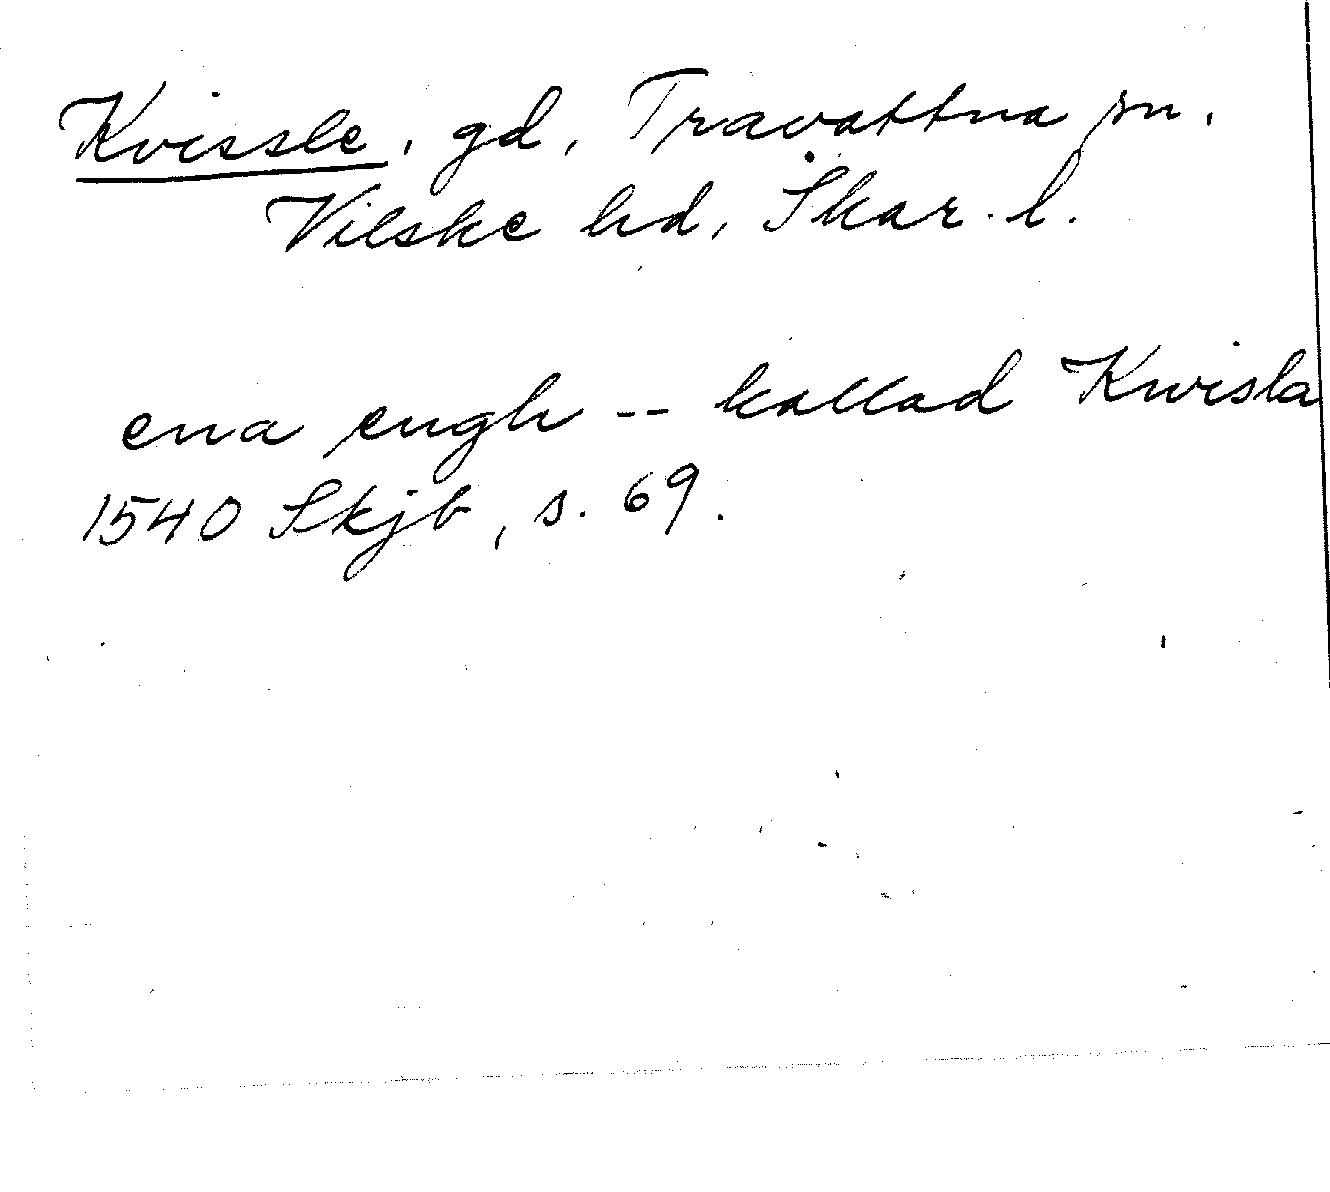 Kvissle, gd, Travattna sn.
Vilske hd, Skar. l.
ena engh -- kallad Kwisla
1540 Skjb, s. 69.